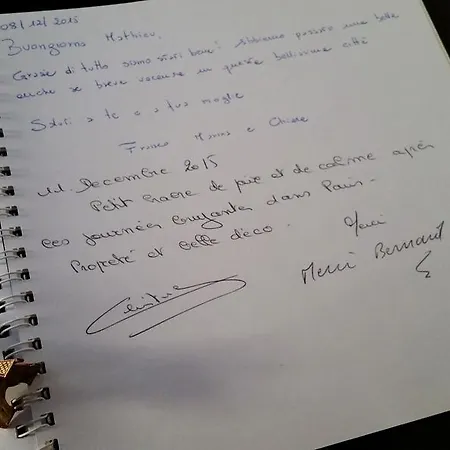 08/12/2015
Buongiorno Mathieu,
Grazie di tutto siamo stati bene! Abbiamo passato una bella
anche se breve vacanza in questa bellissima città
Saluti a te e a tua moglie
e Chiara
11 Decembre 2015
Petit havre de paix et de calme après
ces journées bruyantes dans Paris -
Propreté et belle déco. Merci
Bernard